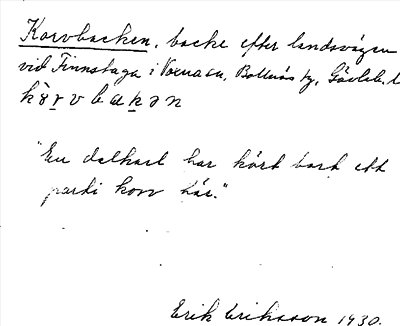 Korvbacken, backe efter landsvägen
vid Finnstuga i Voxnaen, Bollnäs tg, Gävleb. l
kò̀rvbakən
"En dalkarl har kört bort ett
parti korv här."
Erik Eriksson 1930.